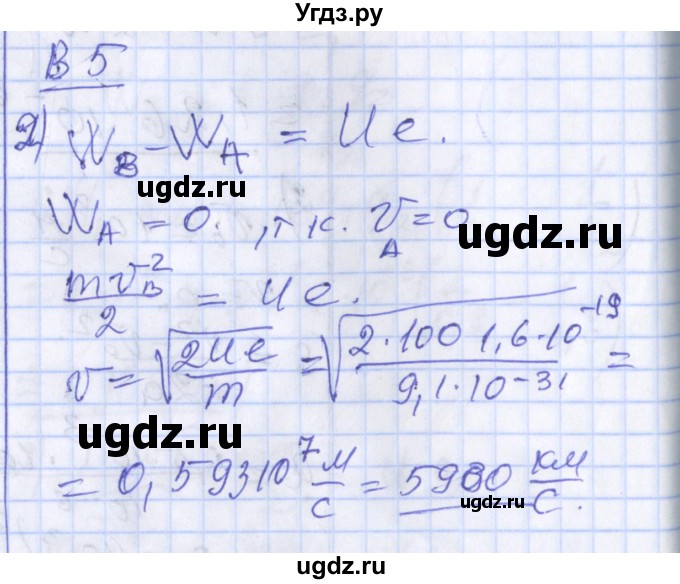 Угдз.ру
В 5
2) W_B - W_A = Ue.
ugdz.ru
W_A = 0. , т к. v_A = 0
ugdz.ru
mv_B^2/2 = Ue.
v = √(2Ue/m) = √(2·100 1,6·10^-19/9,1·10^-31) =
ugdz.ru
= 0,59310^7 м/с = 5930 км/с.
ugdz.ru
ugdz.ru